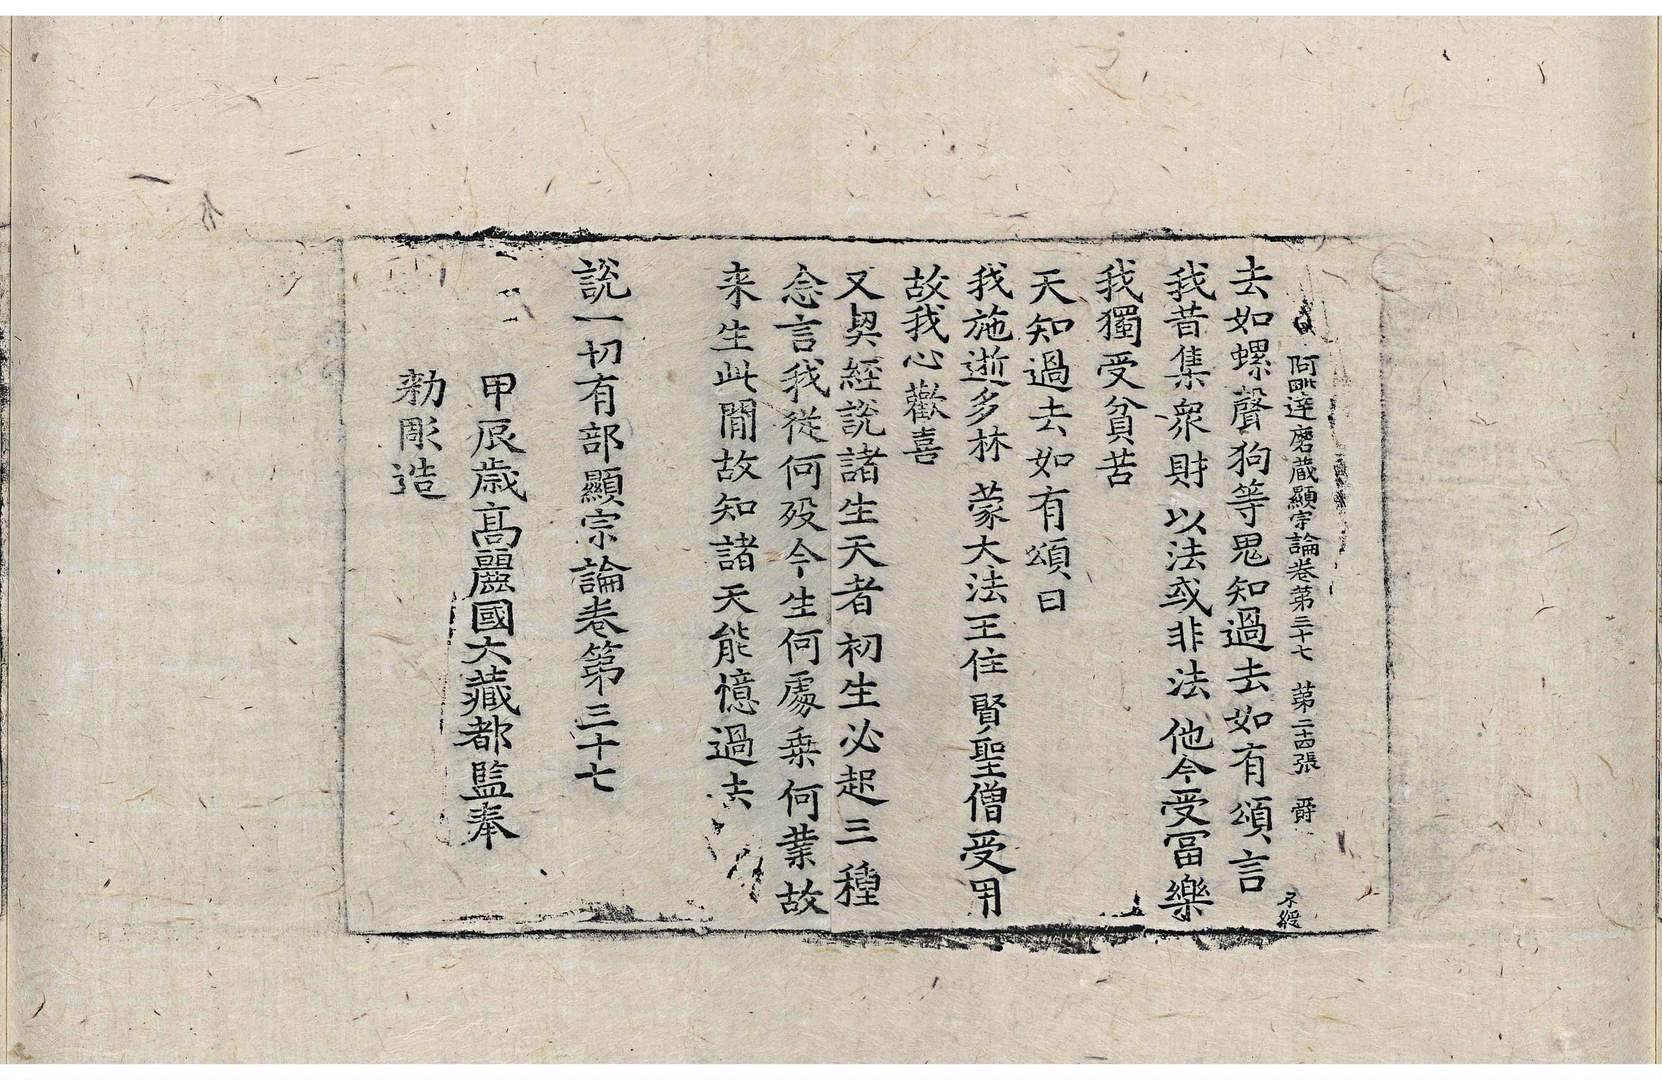 阿毗達磨藏顯宗論卷第三十七 第二十四張 爵
去如螺聲狗等鬼知過去如有頌言
我昔集衆財 以法或非法 他今受冨樂
我獨受貧苦
天知過去如有頌曰
我施逝多林 蒙大法王住 賢聖僧受用
故我心歡喜
又契經說諸生天者初生必起三種
念言我從何歿今生何處乗何業故
来生此閒故知諸天能憶過去
說一切有部顯宗論卷第三十七
甲辰歲高麗國大藏都監奉
勑彫造